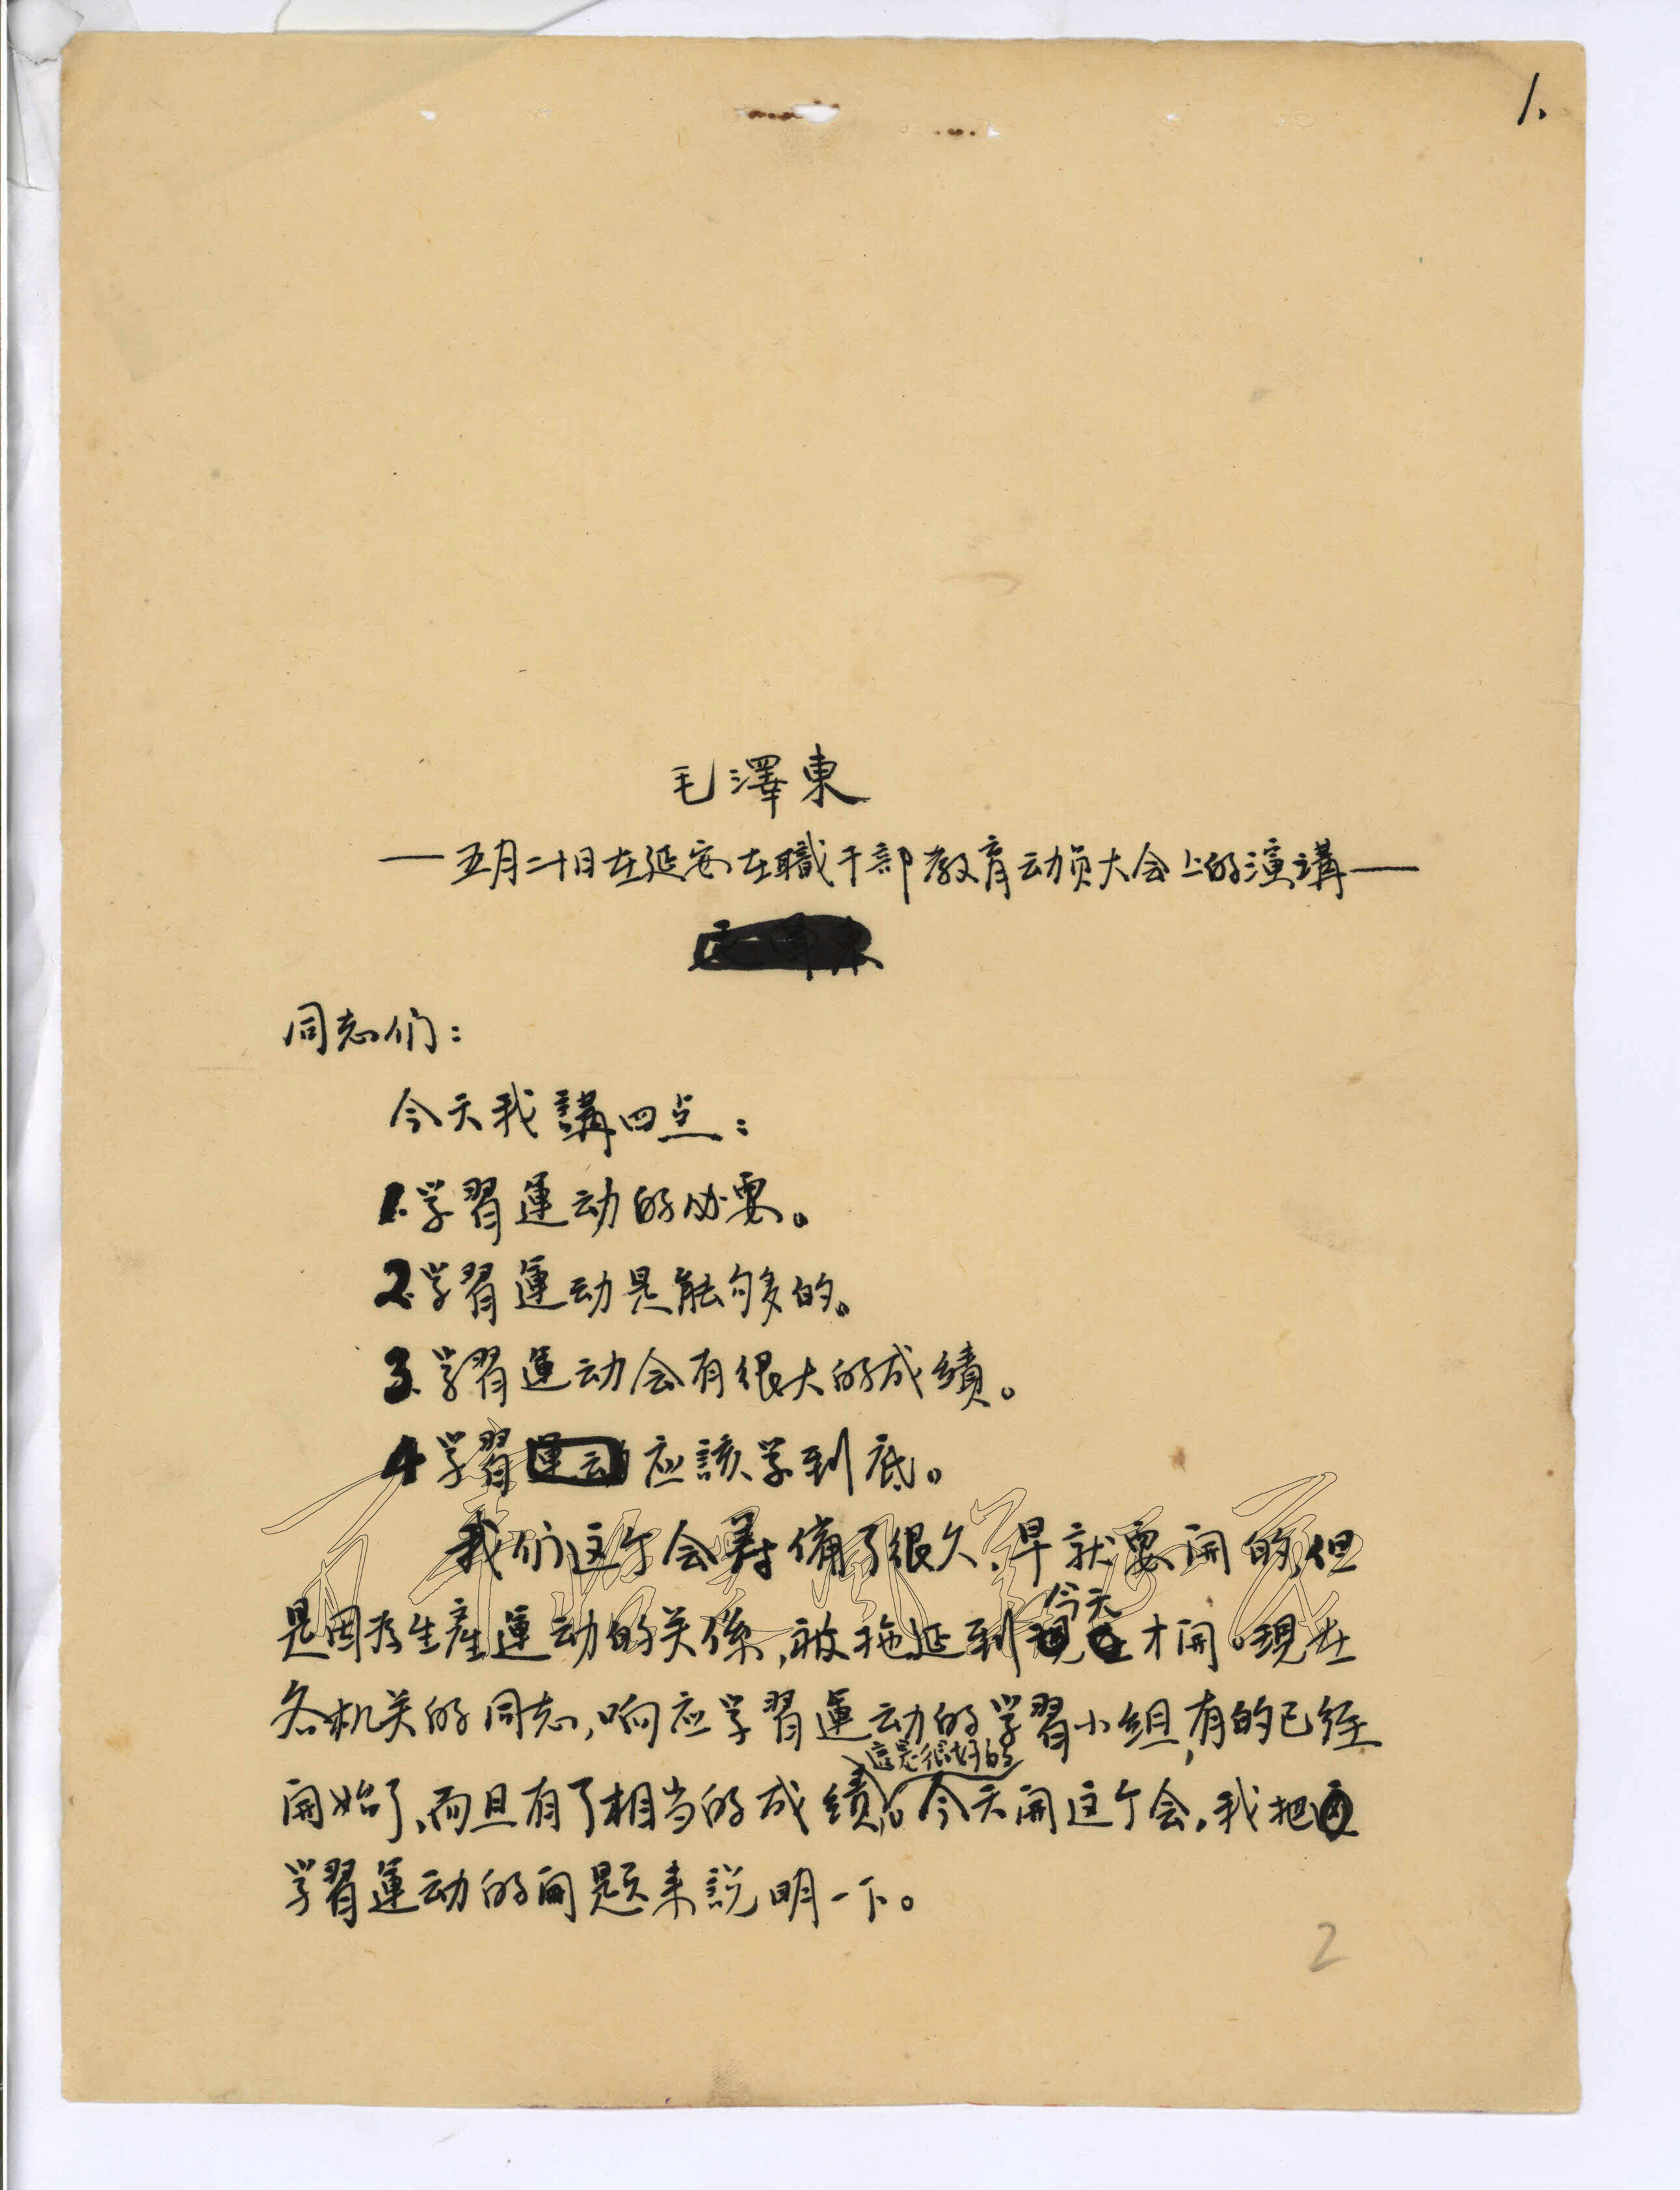 1.
毛澤東
—五月二十日在延安在職干部教育动员大会上的演講—
同志们：
今天我講四点：
1.学習運动的必要。
2.学習運动是能够的。
3.学習運动会有很大的成績。
4学習運动应該学到底。
我们这个会筹備了很久，早就要開的，但
今天
是因为生産運动的关係，被拖延到現在才開。現在
各机关的同志，响应学習運动的学習小组，有的已经
這是很好的
開始了，而且有了相当的成績。今天開这个会，我把
学習運动的問題来説明一下。
2